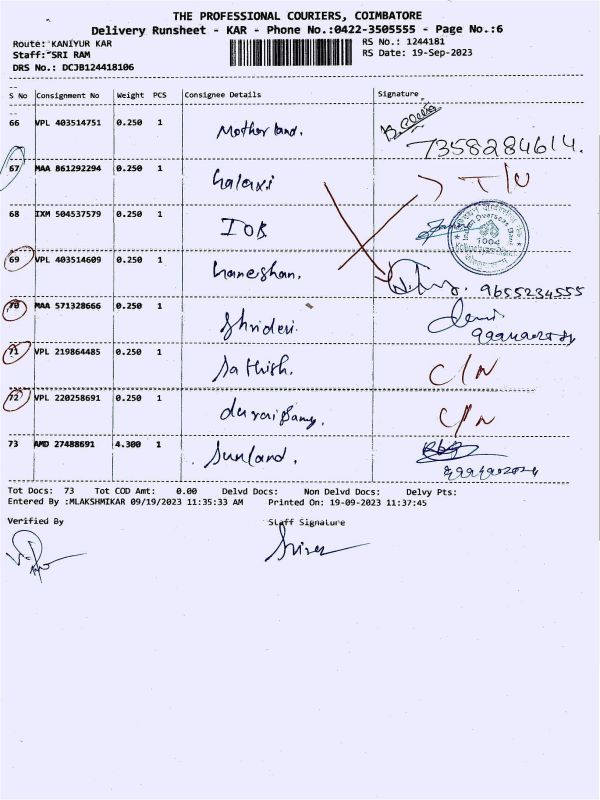 THE PROFESSIONAL COURIERS, COIMBATORE
Delivery Runsheet - KAR - Phone No.:0422-3505555 - Page No.:6
Route: KANIYUR KAR RS No.: 1244181
Staff: SRI RAM RS Date: 19-Sep-2023
DRS No.: DCJB124418106
S No Consignment No Weight PCS Consignee Details Signature
66 VPL 403514751 0.250 1 Motherland. 7358284614.
67 MAA 861292294 0.250 1 Galaxi T/U
68 IXM 504537579 0.250 1 IOB
69 VPL 403514609 0.250 1 Ganeshan. 9655234555
70 MAA 571328666 0.250 1 Shridevi.
71 VPL 219864485 0.250 1 Sathish. C/N
72 VPL 220258691 0.250 1 duraisamy. C/N
73 AMD 27488691 4.300 1 Sunland.
Tot Docs: 73 Tot COD Amt: 0.00 Delvd Docs: Non Delvd Docs: Delvy Pts:
Entered By :MLAKSHMIKAR 09/19/2023 11:35:33 AM Printed On: 19-09-2023 11:37:45
Verified By Staff Signature